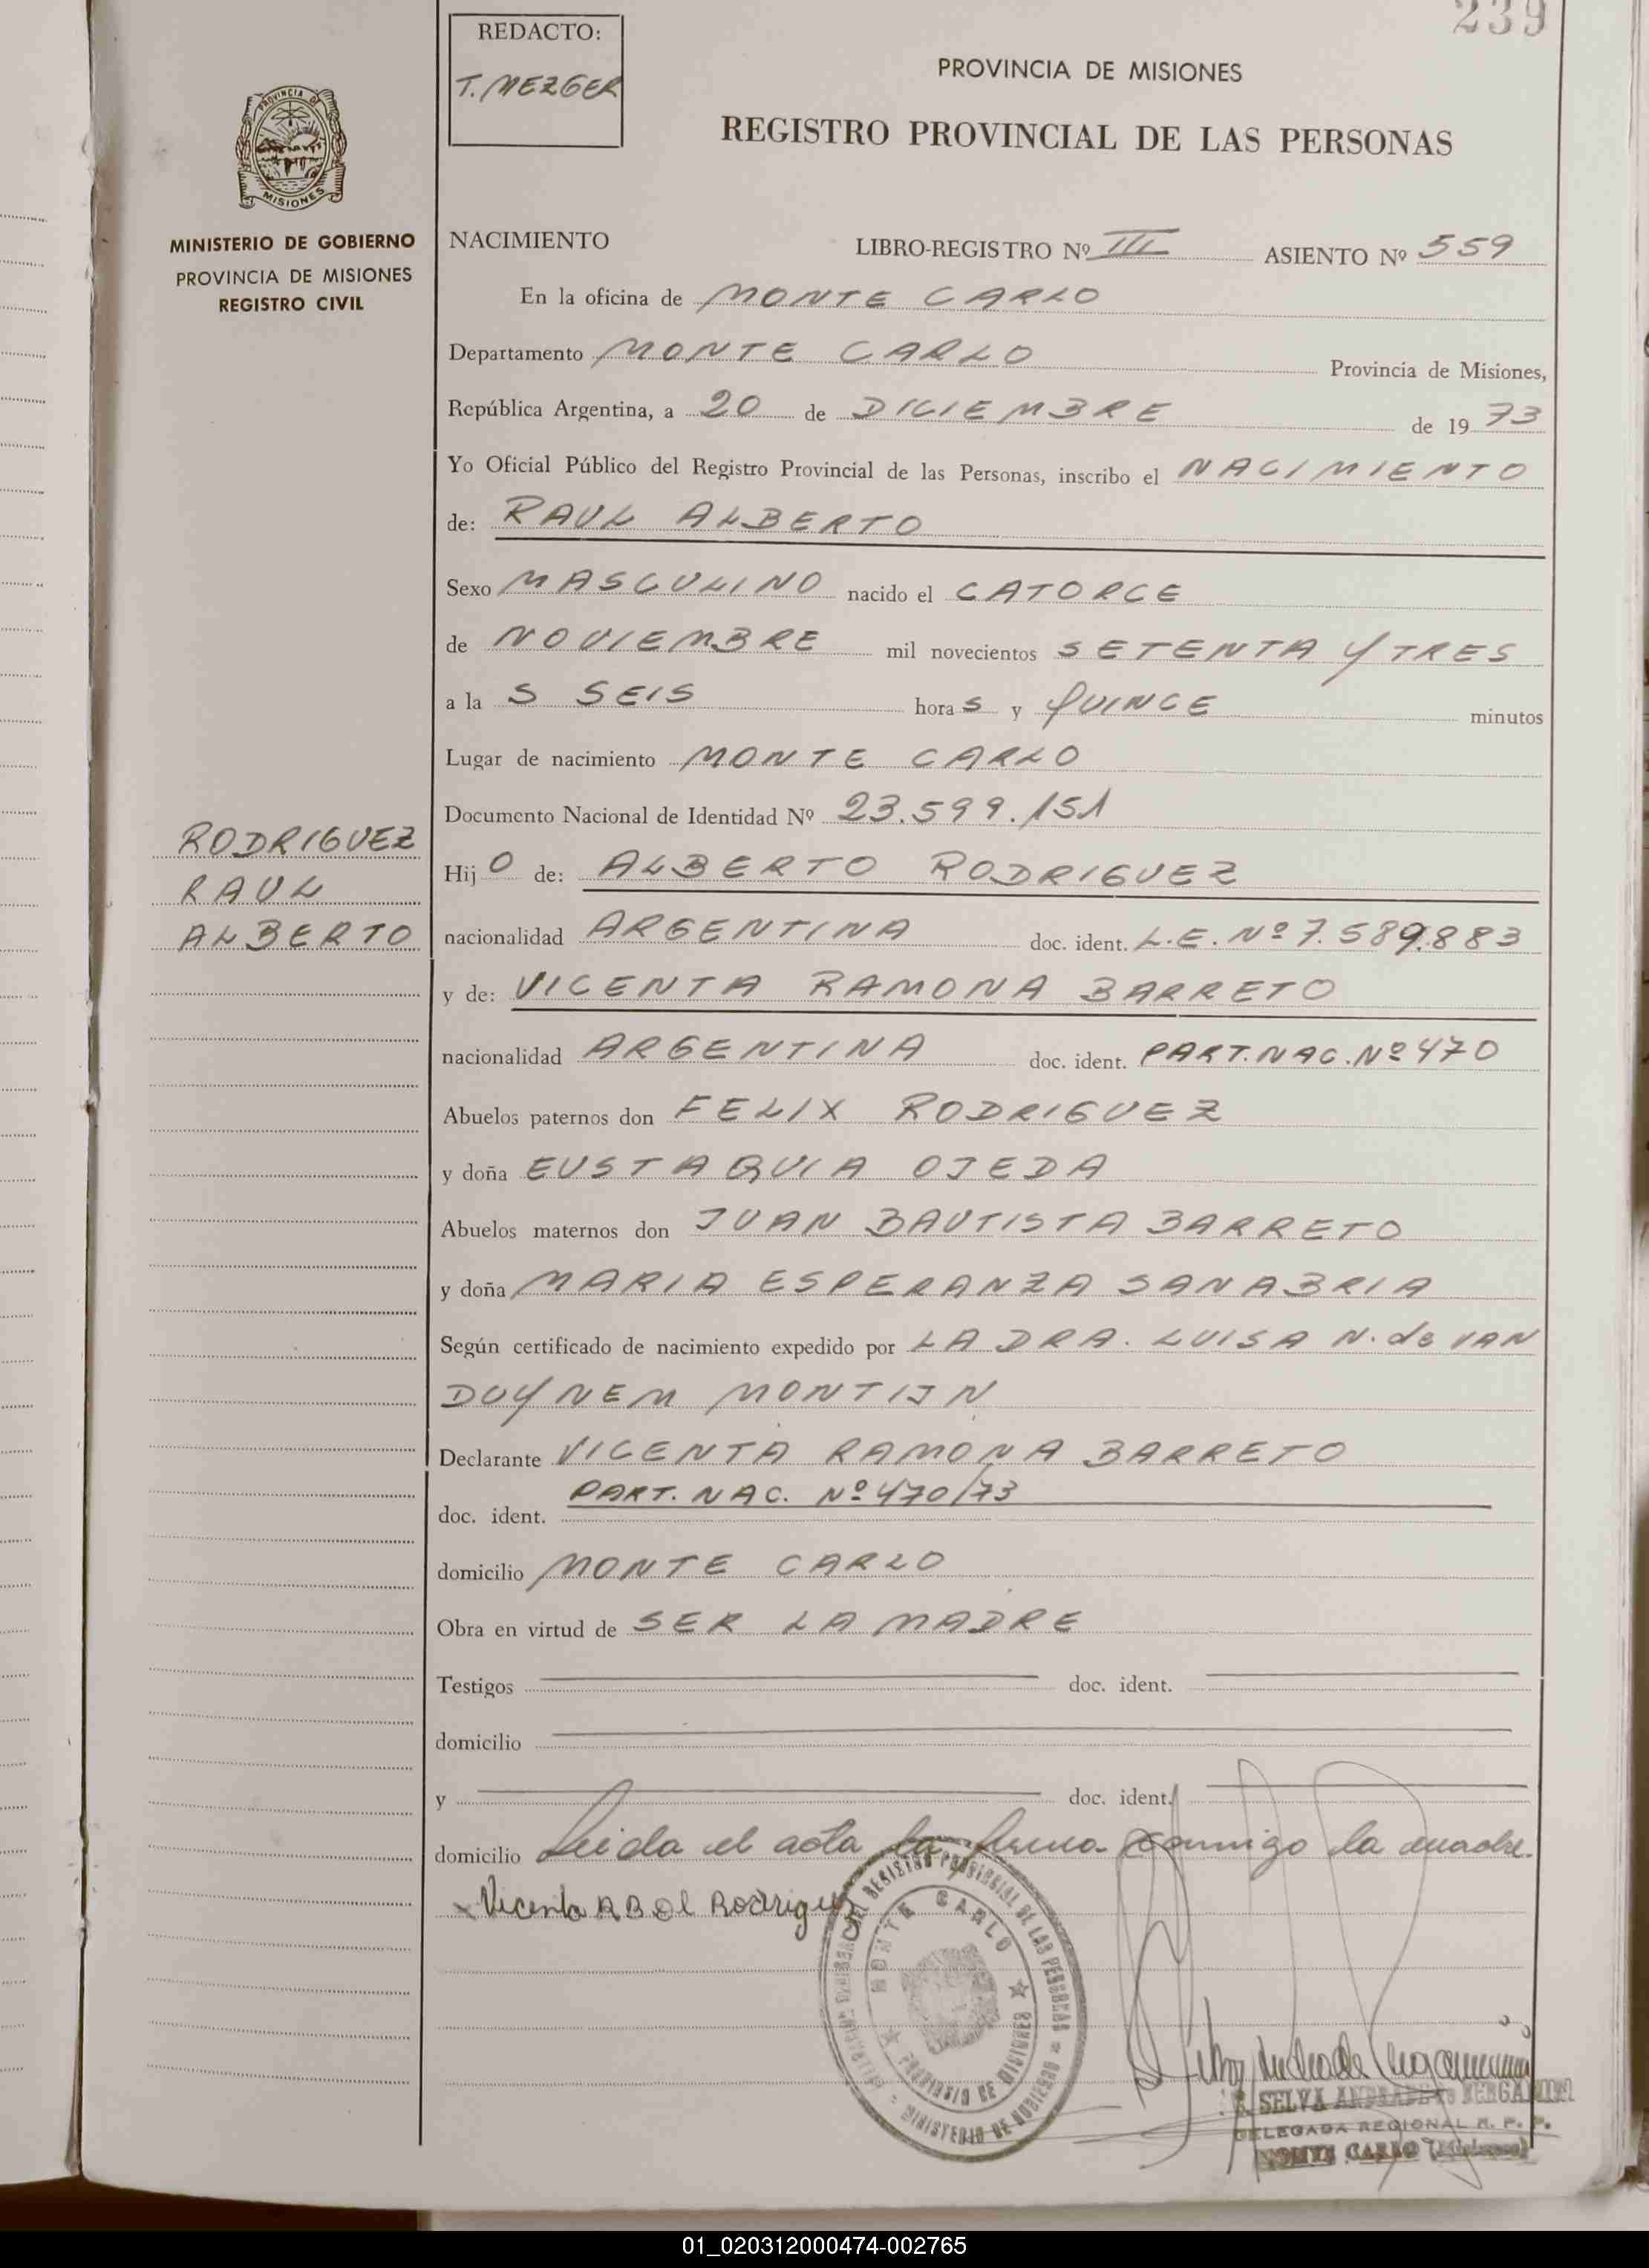 239
REDACTO:
T. MEZGER
PROVINCIA DE MISIONES
REGISTRO PROVINCIAL DE LAS PERSONAS
PROVINCIA DE
MISIONES
MINISTERIO DE GOBIERNO
PROVINCIA DE MISIONES
REGISTRO CIVIL
NACIMIENTO LIBRO-REGISTRO Nº III ASIENTO Nº 559
En la oficina de MONTE CARLO
Departamento MONTE CARLO Provincia de Misiones,
República Argentina, a 20 de DICIEMBRE de 19 73
Yo Oficial Público del Registro Provincial de las Personas, inscribo el NACIMIENTO
de: RAUL ALBERTO
Sexo MASCULINO nacido el CATORCE
de NOVIEMBRE mil novecientos SETENTA Y TRES
a la S SEIS hora S y QUINCE minutos
Lugar de nacimiento MONTE CARLO
Documento Nacional de Identidad Nº 23.599.151
RODRIGUEZ
RAUL
ALBERTO
Hij O de: ALBERTO RODRIGUEZ
nacionalidad ARGENTINA doc. ident. L.E. Nº 7.589.883
y de: VICENTA RAMONA BARRETO
nacionalidad ARGENTINA doc. ident. PART. NAC. Nº 470
Abuelos paternos don FELIX RODRIGUEZ
y doña EUSTAQUIA OJEDA
Abuelos maternos don JUAN BAUTISTA BARRETO
y doña MARIA ESPERANZA SANABRIA
Según certificado de nacimiento expedido por LA DRA. LUISA N. de VAN
DUYNEM MONTIJN
Declarante VICENTA RAMONA BARRETO
PART. NAC. Nº 470/73
doc. ident.
domicilio MONTE CARLO
Obra en virtud de SER LA MADRE
Testigos doc. ident.
domicilio
y doc. ident.
domicilio Leida el acta la firma conmigo la madre.
Vicenta R B de Rodriguez
REGISTRO PROVINCIAL DE LAS PERSONAS
MONTE CARLO
PROVINCIA DE MISIONES
MINISTERIO DE GOBIERNO
SELVA ANDRADE
DELEGADA REGIONAL R. P. P.
MONTE CARLO (Misiones)
01_020312000474-002765